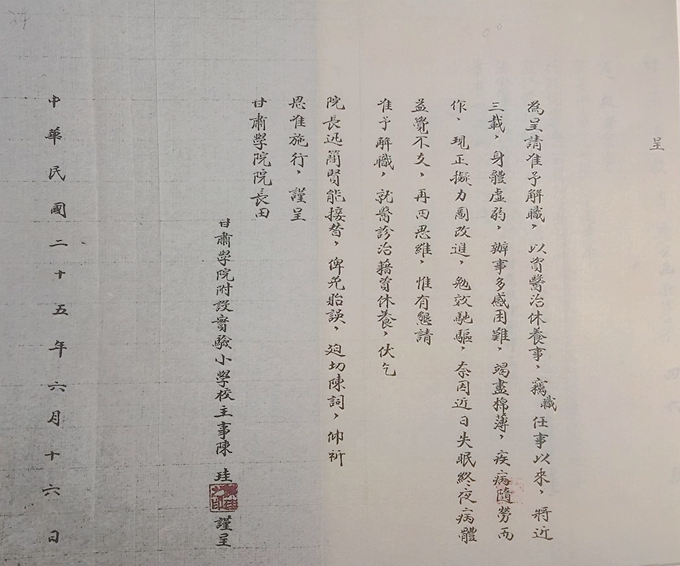 呈
為呈請准予解職，以資醫治休養事，竊職任事以來，將近
三載，身體虛弱，辦事多感困難，竭盡棉薄，疾病隨勞而
作，現正擬力圖改進，勉效馳驅，奈因近日失眠終夜病體
益覺不支，再四思維，惟有懇請
准予解職，就醫診治藉資休養，伏乞
院長迅簡賢能接替，俾免貽誤，迫切陳詞，仰祈
恩准施行，謹呈
甘肅學院院長田
甘肅學院附設實驗小學校主事陳珪謹呈
中華民國二十五年六月十六日